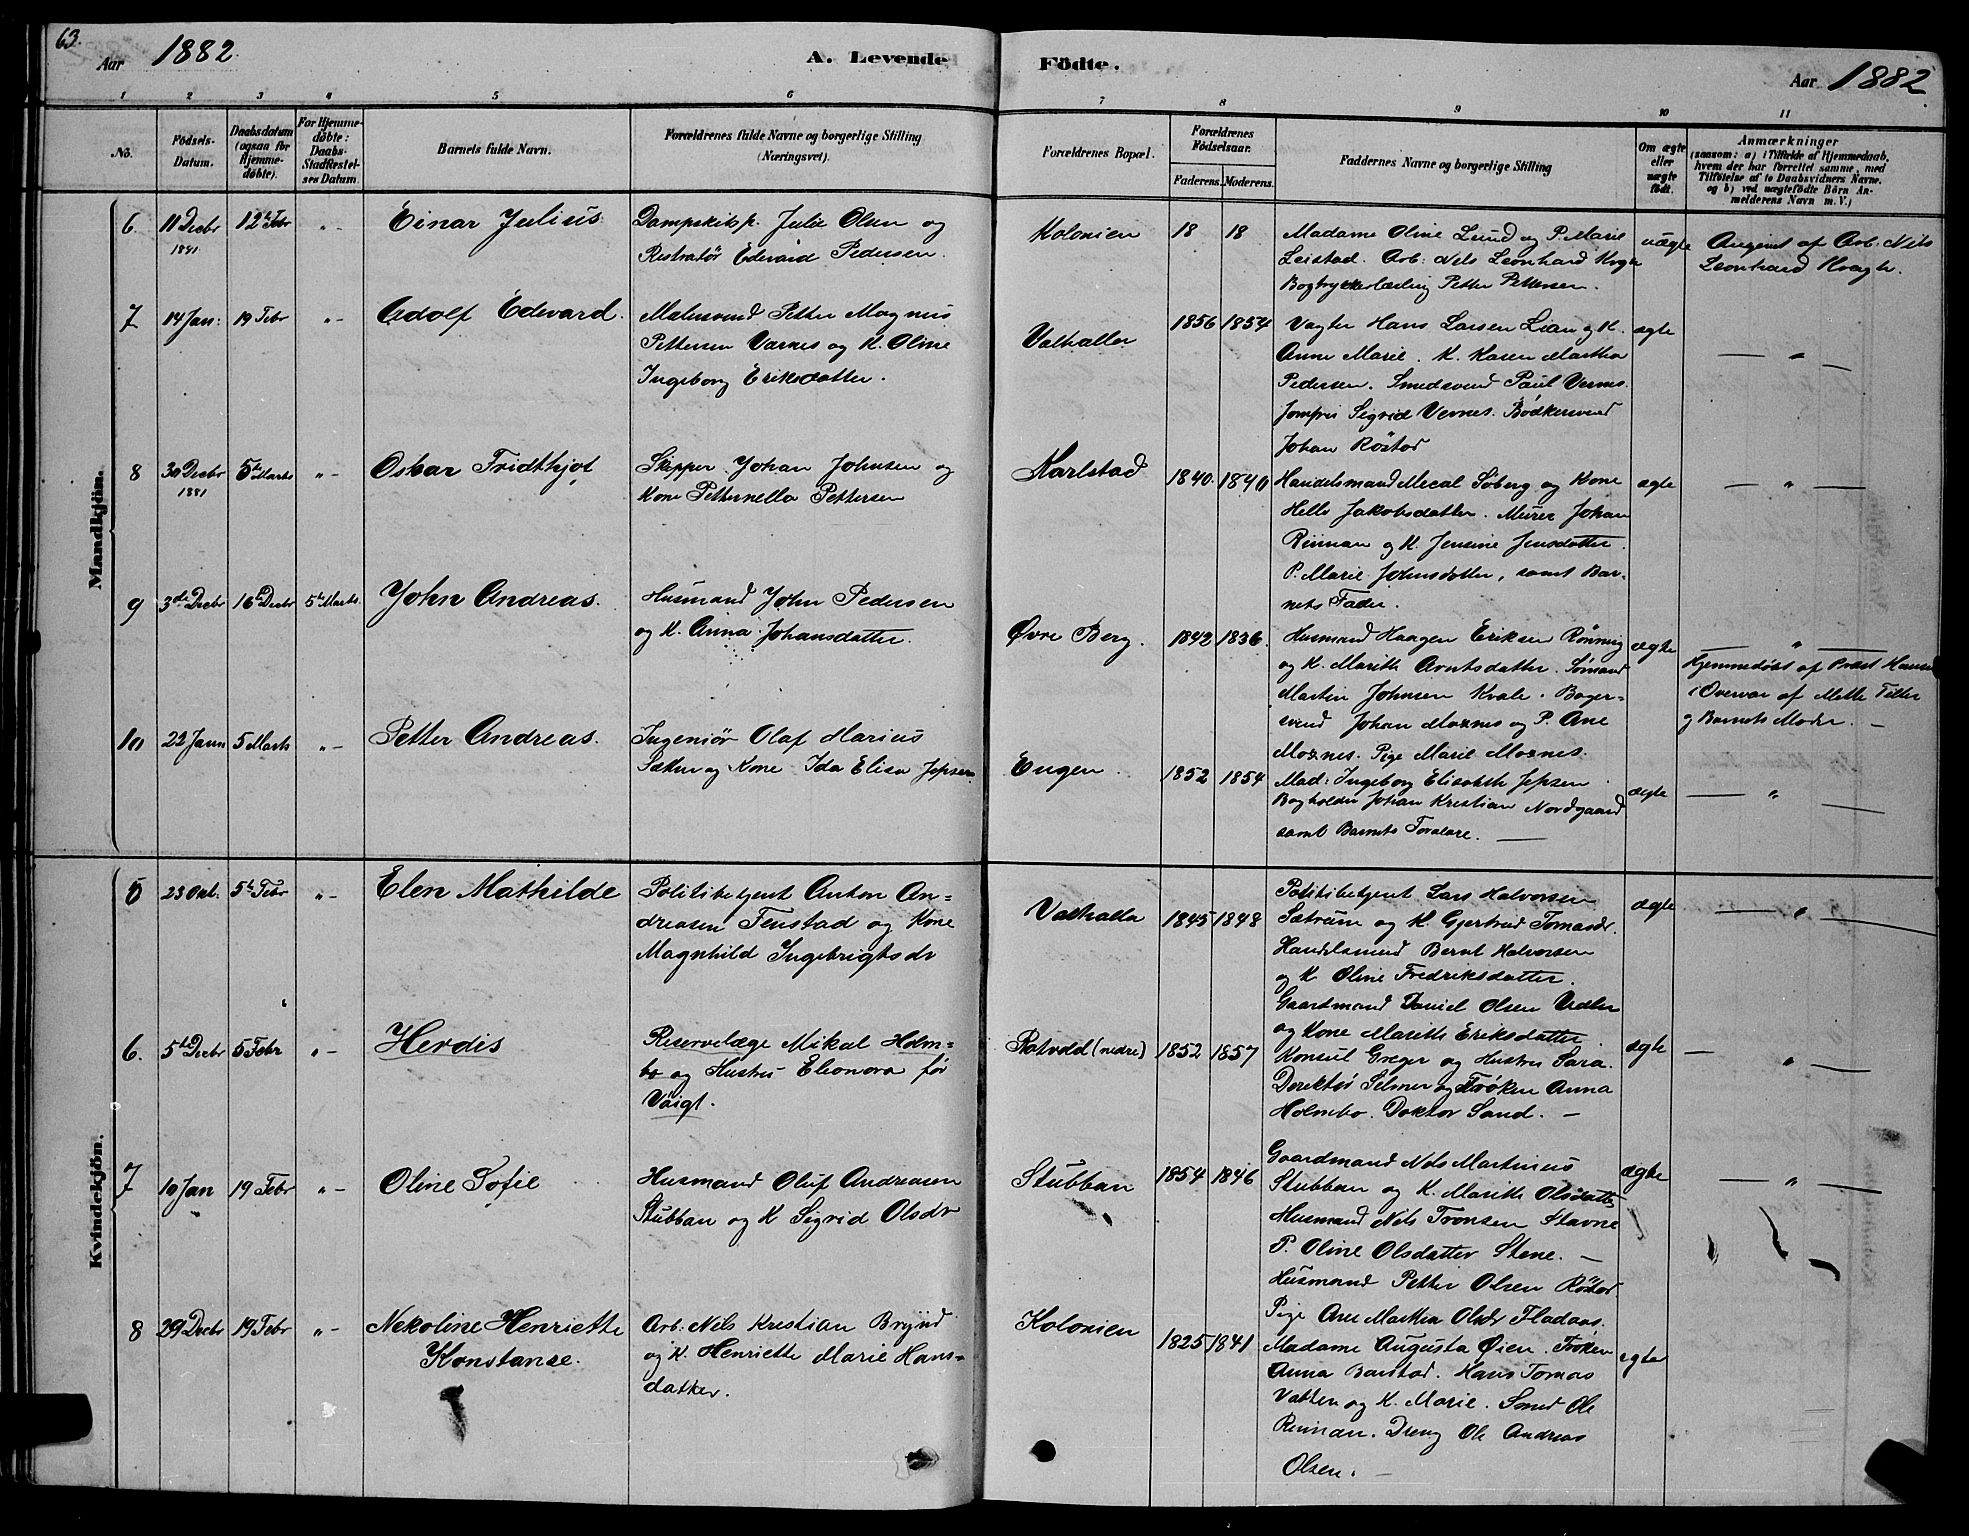 63.
Aar 1882.
A. Levende Födte.
Aar 1882
1 2 3 4 5 6 7 8 9 10 11
No.
Födsels-Datum.
Daabsdatum (ogsaa for Hjemme-døbte).
For Hjemme-døbte: Daabs-Stadfæstel-ses Datum.
Barnets fulde Navn.
Forældrenes fulde Navne og borgerlige Stilling (Næringsvei).
Forældrenes Bopæl.
Forældrenes Födselsaar.
Faderens. Moderens.
Faddernes Navne og borgerlige Stilling
Om ægte eller uægte født.
Anmærkninger
(saasom: a) i Tilfælde af Hjemmedaab, hvem der har forrettet samme, med Tilføielse af to Daabsvidners Navne, og b) ved uægtefödte Börn An-melderens Navn m. V.)
Mandkjön.
6 11 Decbr 1881 12te Febr „ - Einar Julius
Dampskibsp. Julie Olsen og
Restratør Edevard Pedersen.
Kolonien 18 18
Madame Oline Lund og P. Marie
Leistad. Arb: Nels Leonhard
Bogtrykkerlærling Petter Pettersen.
uægte
Angivet af Arb. Nils
Leonhard
7 14 Jan: 19 Febr „ - Adolf Edevard.
Malersvend Petter Magnus
Pettersen Varnes og K. Oline
Ingeborg Eriksdatter.
Valhalla 1856 1854
Vagter Hans Larsen Lian og K.
Anne Marie. K. Karen Martha
Pedersen. Smedsvend Paul Vernes.
Jomfru Sigrid Vernes. Bødkersvend
Johan Röstad
ægte — „ —
8 30 Decbr 1881 5te Marts „ - Oskar Fridthjof
Skipper Johan Johnsen og
Kone Petternella Pettersen
Karlstad 1840. 1840
Handelsmand Mecal Soberg og Kone
Helle Jakobsdatter. Murer Johan
Reiman og K. Jensine Jensdatter.
P. Marie Johnsdatter, samt Bar-
nets Fader.
ægte — „ —
9 3de Decbr 16de Decbr 5te Marts. John Andreas.
Husmand John Pedersen
og K. Anna Johansdatter.
Øvre Berg. 1842 1836.
Husmand Haagen Eriksen Rönning
og K. Marith Arntsdatter. Sömand
Martin Johnsen Kvale. Bager-
svend Johan Moxnes og P. Ane
Moxnes. Pige Marie Moxnes.
ægte — „ —
Hjemmedøbt af Præst Hansen
i Overvær af Mette Tiller
og Barnets Moder. —
10 22 Janu 5 Marts „ - Petter Andreas.
Ingeniør Olaf Marius
Sæther og Kone Ida Elisa Jepsen
Engen. 1852 1854
Mad: Ingeborg Elisabeth Jepsen
Bogholder Johan Kristian Nordgaard
samt Barnets Forældre. —
ægte — „ —
Kvindekjön.
5 23 Okt. 5te Febr „ - Elen Mathilde
Politibetjent Anton An=
dreasen Fenstad og Kone
Magnhild Ingebrigtsdr
Valhalla 1845 1848
Politibetjent Lars Halvorsen
Sætrum og K. Gjertrud Tomasdr.
Handelsmand Bernt Halvorsen
og K. Oline Fredriksdatter.
Gaardmand Daniel Olsen
og Kone Marith Eriksdatter
ægte — „ —
6. 5te Decbr 5 Febr „ - Herdis
Reservelæge Mikal Holm=
bo og Hustru Eleonora før
Voigt.
Rotvold (nedre) 1852 1857
Konsul Greger og Hustru Sara.
Derektør Selmer og Frøken Anna
Holmbo. Doktor Sand. —
ægte — „ —
7 10 Jan 19 Febr „ - Oline Sofie
Husmand Oluf Andreasen
Stubban og K Sigrid Olsdr
Stubban 1854 1846
Gaardmand Nels Martinus
Stubban og K. Marith Olsdatter
Husmand Nels Tronsen Stavne
P. Oline Olsdatter Stene. —
Husmand Petter Olsen Röstad
Pige Ane Marthea Olsdr Fladaas.
ægte — „ —
8 29 Decbr 19 Febr „ - Nekoline Henriette
Konstanse.
Arb: Nels Kristian Brynd
og K. Henriette Marie Hans=
datter.
Kolonien 1825 1841
Madame Augusta Øien. Frøken
Anna Barstad. Hans Tomas
Vatten og K. Marie. Smed Ole
Reiman. Dreng Ole Andreas
Olsen. —
ægte